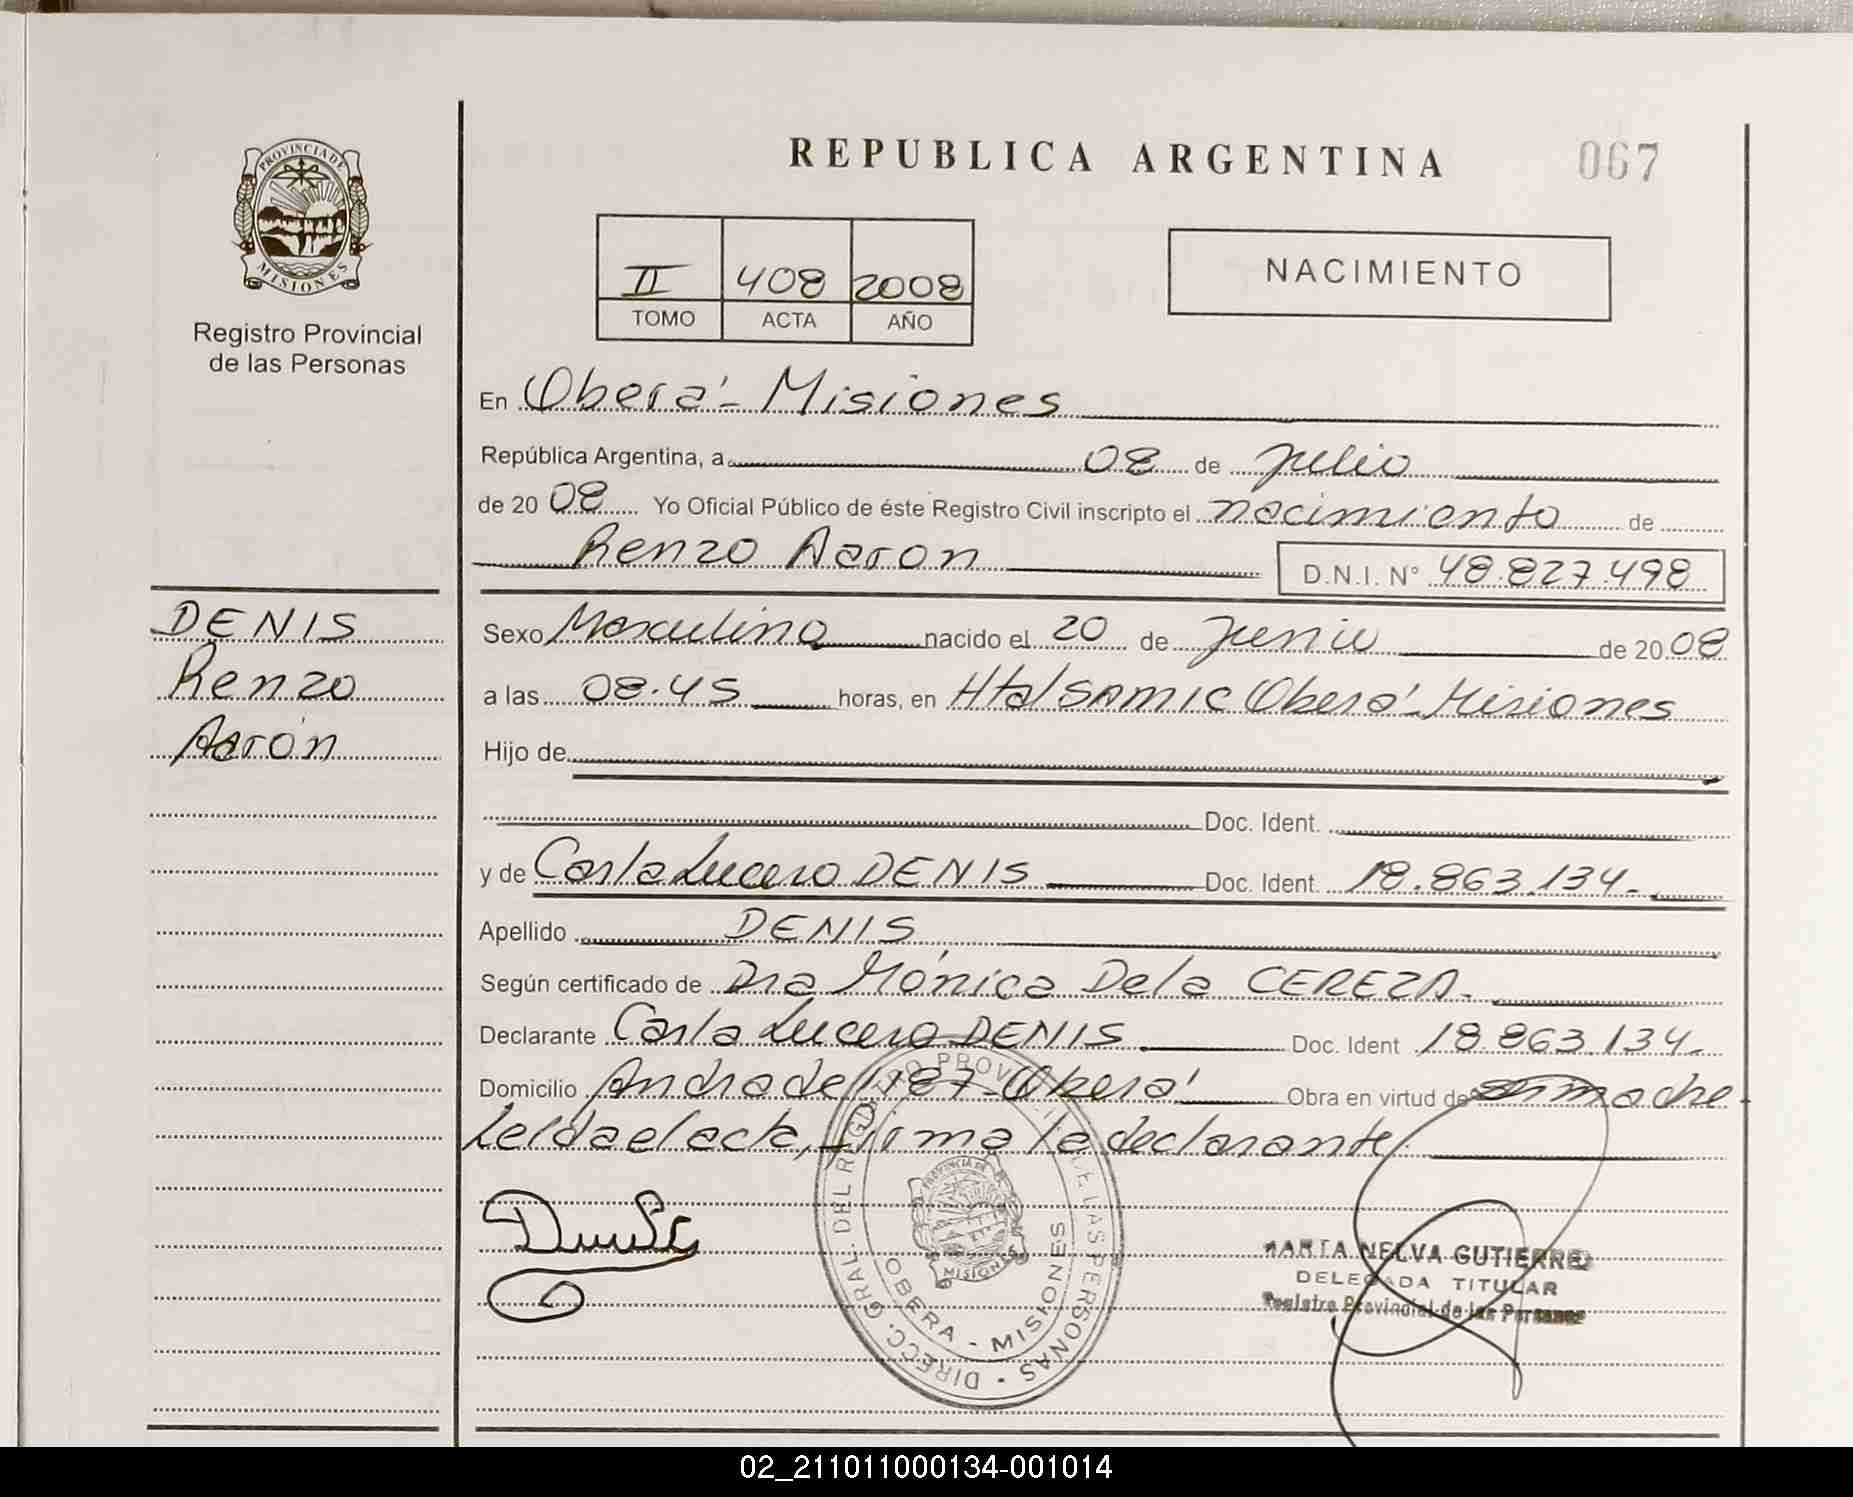 REPUBLICA ARGENTINA
067
PROVINCIA DE
MISIONES
Registro Provincial
de las Personas
II 408 2008
TOMO ACTA AÑO
NACIMIENTO
En Oberá - Misiones
República Argentina, a 08 de Julio
de 20 08 Yo Oficial Público de éste Registro Civil inscripto el nacimiento de
Renzo Aaron
D.N.I. N° 48.827.498
DENIS
Renzo
Aarón
Sexo Masculino nacido el 20 de Junio de 20 08
a las 08.45 horas, en Htal SAMIC Oberá - Misiones
Hijo de
Doc. Ident.
y de Carla Lucero DENIS Doc. Ident. 18.863.134.-
Apellido DENIS
Según certificado de Dra Mónica De la CEREZA.
Declarante Carla Lucero DENIS Doc. Ident 18.863.134.-
Domicilio Andrade 1187 - Oberá Obra en virtud de ser madre
Leída el acta, firma la declarante.
DIRECC. GRAL. DEL REGISTRO PROVINCIAL DE LAS PERSONAS
OBERA - MISIONES
PROVINCIA DE
MISIONES
MARTA NELVA GUTIERREZ
DELEGADA TITULAR
Registro Provincial de las Personas
02_211011000134-001014